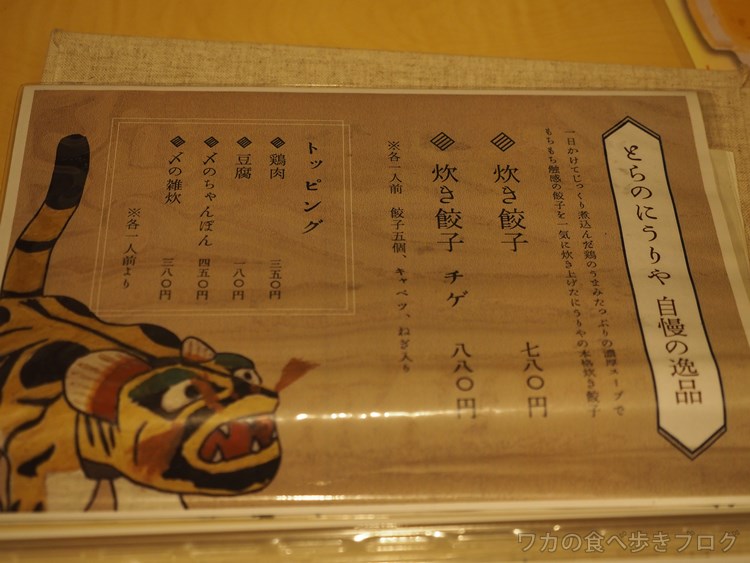 とらのにうりや 自慢の逸品
一日かけてじっくり煮込んだ鶏のうまみたっぷりの濃厚スープで
もちもち触感の餃子を一気に炊き上げたにうりやの本格炊き餃子
炊き餃子 七八〇円
炊き餃子 チゲ 八八〇円
※各一人前 餃子五個、キャベツ、ねぎ入り
トッピング
鶏肉 三五〇円
豆腐 一八〇円
〆のちゃんぽん 四五〇円
〆の雑炊 三八〇円
※各一人前より
ワカの食べ歩きブログ